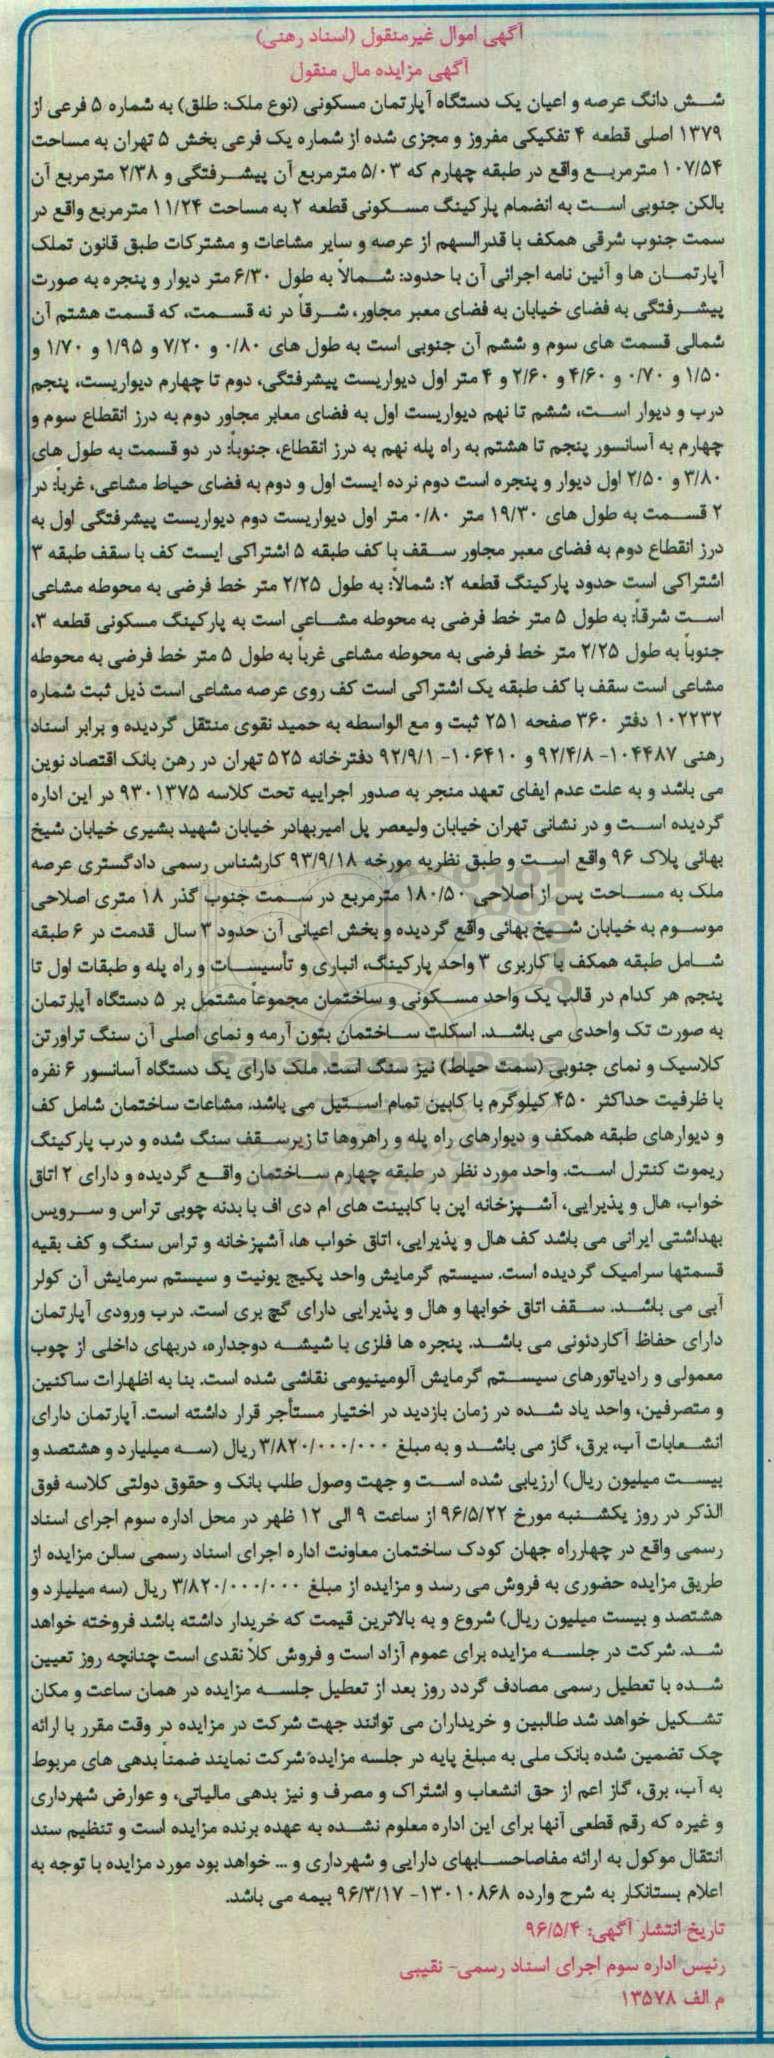 آگهی اموال غیرمنقول (اسناد رهنی)
آگهی مزایده مال منقول
شش دانگ عرصه و اعیان یک دستگاه آپارتمان مسکونی (نوع ملک: طلق) به شماره ۵ فرعی از
۱۳۷۹ اصلی قطعه ۴ تفکیکی مفروز و مجزی شده از شماره یک فرعی بخش ۵ تهران به مساحت
۱۰۷/۵۴ مترمربع واقع در طبقه چهارم که ۵/۰۳ مترمربع آن پیشرفتگی و ۲/۳۸ مترمربع آن
بالکن جنوبی است به انضمام پارکینگ مسکونی قطعه ۲ به مساحت ۱۱/۲۴ مترمربع واقع در
سمت جنوب شرقی همکف با قدرالسهم از عرصه و سایر مشاعات و مشترکات طبق قانون تملک
آپارتمان ها و آئین نامه اجرائی آن با حدود: شمالاً به طول ۶/۳۰ متر دیوار و پنجره به صورت
پیشرفتگی به فضای خیابان به فضای معبر مجاور، شرقاً در نه قسمت، که قسمت هشتم آن
شمالی قسمت های سوم و ششم آن جنوبی است به طول های ۰/۸۰ و ۷/۲۰ و ۱/۹۵ و ۱/۷۰ و
۱/۵۰ و ۰/۷۰ و ۴/۶۰ و ۲/۶۰ و ۴ متر اول دیواریست پیشرفتگی، دوم تا چهارم دیواریست، پنجم
درب و دیوار است، ششم تا نهم دیواریست اول به فضای معابر مجاور دوم به درز انقطاع سوم و
چهارم به آسانسور پنجم تا هشتم به راه پله نهم به درز انقطاع، جنوباً: در دو قسمت به طول های
۳/۸۰ و ۲/۵۰ اول دیوار و پنجره است دوم نرده ایست اول و دوم به فضای حیاط مشاعی، غرباً: در
۲ قسمت به طول های ۱۹/۳۰ متر ۰/۸۰ متر اول دیواریست دوم دیواریست پیشرفتگی اول به
درز انقطاع دوم به فضای معبر مجاور سقف با کف طبقه ۵ اشتراکی ایست کف با سقف طبقه ۳
اشتراکی است حدود پارکینگ قطعه ۲: شمالاً: به طول ۲/۲۵ متر خط فرضی به محوطه مشاعی
است شرقاً: به طول ۵ متر خط فرضی به محوطه مشاعی است به پارکینگ مسکونی قطعه ۳،
جنوباً به طول ۲/۲۵ متر خط فرضی به محوطه مشاعی غرباً به طول ۵ متر خط فرضی به محوطه
مشاعی است سقف با کف طبقه یک اشتراکی است کف روی عرصه مشاعی است ذیل ثبت شماره
۱۰۲۲۳۲ دفتر ۳۶۰ صفحه ۲۵۱ ثبت و مع الواسطه به حمید نقوی منتقل گردیده و برابر اسناد
رهنی ۱۰۴۴۸۷- ۹۲/۴/۸ و ۱۰۶۴۱۰- ۹۲/۹/۱ دفترخانه ۵۲۵ تهران در رهن بانک اقتصاد نوین
می باشد و به علت عدم ایفای تعهد منجر به صدور اجراییه تحت کلاسه ۹۳۰۱۳۷۵ در این اداره
گردیده است و در نشانی تهران خیابان ولیعصر پل امیربهادر خیابان شهید بشیری خیابان شیخ
بهائی پلاک ۹۶ واقع است و طبق نظریه مورخه ۹۳/۹/۱۸ کارشناس رسمی دادگستری عرصه
ملک به مساحت پس از اصلاحی ۱۸۰/۵۰ مترمربع در سمت جنوب گذر ۱۸ متری اصلاحی
موسوم به خیابان شیخ بهائی واقع گردیده و بخش اعیانی آن حدود ۳ سال قدمت در ۶ طبقه
شامل طبقه همکف با کاربری ۳ واحد پارکینگ، انباری و تأسیسات و راه پله و طبقات اول تا
پنجم هر کدام در قالب یک واحد مسکونی و ساختمان مجموعاً مشتمل بر ۵ دستگاه آپارتمان
به صورت تک واحدی می باشد. اسکلت ساختمان بتون آرمه و نمای اصلی آن سنگ تراورتن
کلاسیک و نمای جنوبی (سمت حیاط) نیز سنگ است. ملک دارای یک دستگاه آسانسور ۶ نفره
با ظرفیت حداکثر ۴۵۰ کیلوگرم با کابین تمام استیل می باشد. مشاعات ساختمان شامل کف
و دیوارهای طبقه همکف و دیوارهای راه پله و راهروها تا زیرسقف سنگ شده و درب پارکینگ
ریموت کنترل است. واحد مورد نظر در طبقه چهارم ساختمان واقع گردیده و دارای ۲ اتاق
خواب، هال و پذیرایی، آشپزخانه اپن با کابینت های ام دی اف با بدنه چوبی تراس و سرویس
بهداشتی ایرانی می باشد کف هال و پذیرایی، اتاق خواب ها، آشپزخانه و تراس سنگ و کف بقیه
قسمتها سرامیک گردیده است. سیستم گرمایش واحد پکیج یونیت و سیستم سرمایش آن کولر
آبی می باشد. سقف اتاق خوابها و هال و پذیرایی دارای گچ بری است. درب ورودی آپارتمان
دارای حفاظ آکاردئونی می باشد. پنجره ها فلزی با شیشه دوجداره، دربهای داخلی از چوب
معمولی و رادیاتورهای سیستم گرمایش آلومینیومی نقاشی شده است. بنا به اظهارات ساکنین
و متصرفین، واحد یاد شده در زمان بازدید در اختیار مستأجر قرار داشته است. آپارتمان دارای
انشعابات آب، برق، گاز می باشد و به مبلغ ۳/۸۲۰/۰۰۰/۰۰۰ ریال (سه میلیارد و هشتصد و
بیست میلیون ریال) ارزیابی شده است و جهت وصول طلب بانک و حقوق دولتی کلاسه فوق
الذکر در روز یکشنبه مورخ ۹۶/۵/۲۲ از ساعت ۹ الی ۱۲ ظهر در محل اداره سوم اجرای اسناد
رسمی واقع در چهارراه جهان کودک ساختمان معاونت اداره اجرای اسناد رسمی سالن مزایده از
طریق مزایده حضوری به فروش می رسد و مزایده از مبلغ ۳/۸۲۰/۰۰۰/۰۰۰ ریال (سه میلیارد و
هشتصد و بیست میلیون ریال) شروع و به بالاترین قیمت که خریدار داشته باشد فروخته خواهد
شد. شرکت در جلسه مزایده برای عموم آزاد است و فروش کلاً نقدی است چنانچه روز تعیین
شده با تعطیل رسمی مصادف گردد روز بعد از تعطیل جلسه مزایده در همان ساعت و مکان
تشکیل خواهد شد طالبین و خریداران می توانند جهت شرکت در مزایده در وقت مقرر با ارائه
چک تضمین شده بانک ملی به مبلغ پایه در جلسه مزایده شرکت نمایند ضمناً بدهی های مربوط
به آب، برق، گاز اعم از حق انشعاب و اشتراک و مصرف و نیز بدهی مالیاتی، و عوارض شهرداری
و غیره که رقم قطعی آنها برای این اداره معلوم نشده به عهده برنده مزایده است و تنظیم سند
انتقال موکول به ارائه مفاصاحسابهای دارایی و شهرداری و ... خواهد بود مورد مزایده با توجه به
اعلام بستانکار به شرح وارده ۱۳۰۱۰۸۶۸- ۹۶/۳/۱۷ بیمه می باشد.
تاریخ انتشار آگهی: ۹۶/۵/۴
رئیس اداره سوم اجرای اسناد رسمی- نقیبی
م الف ۱۳۵۷۸